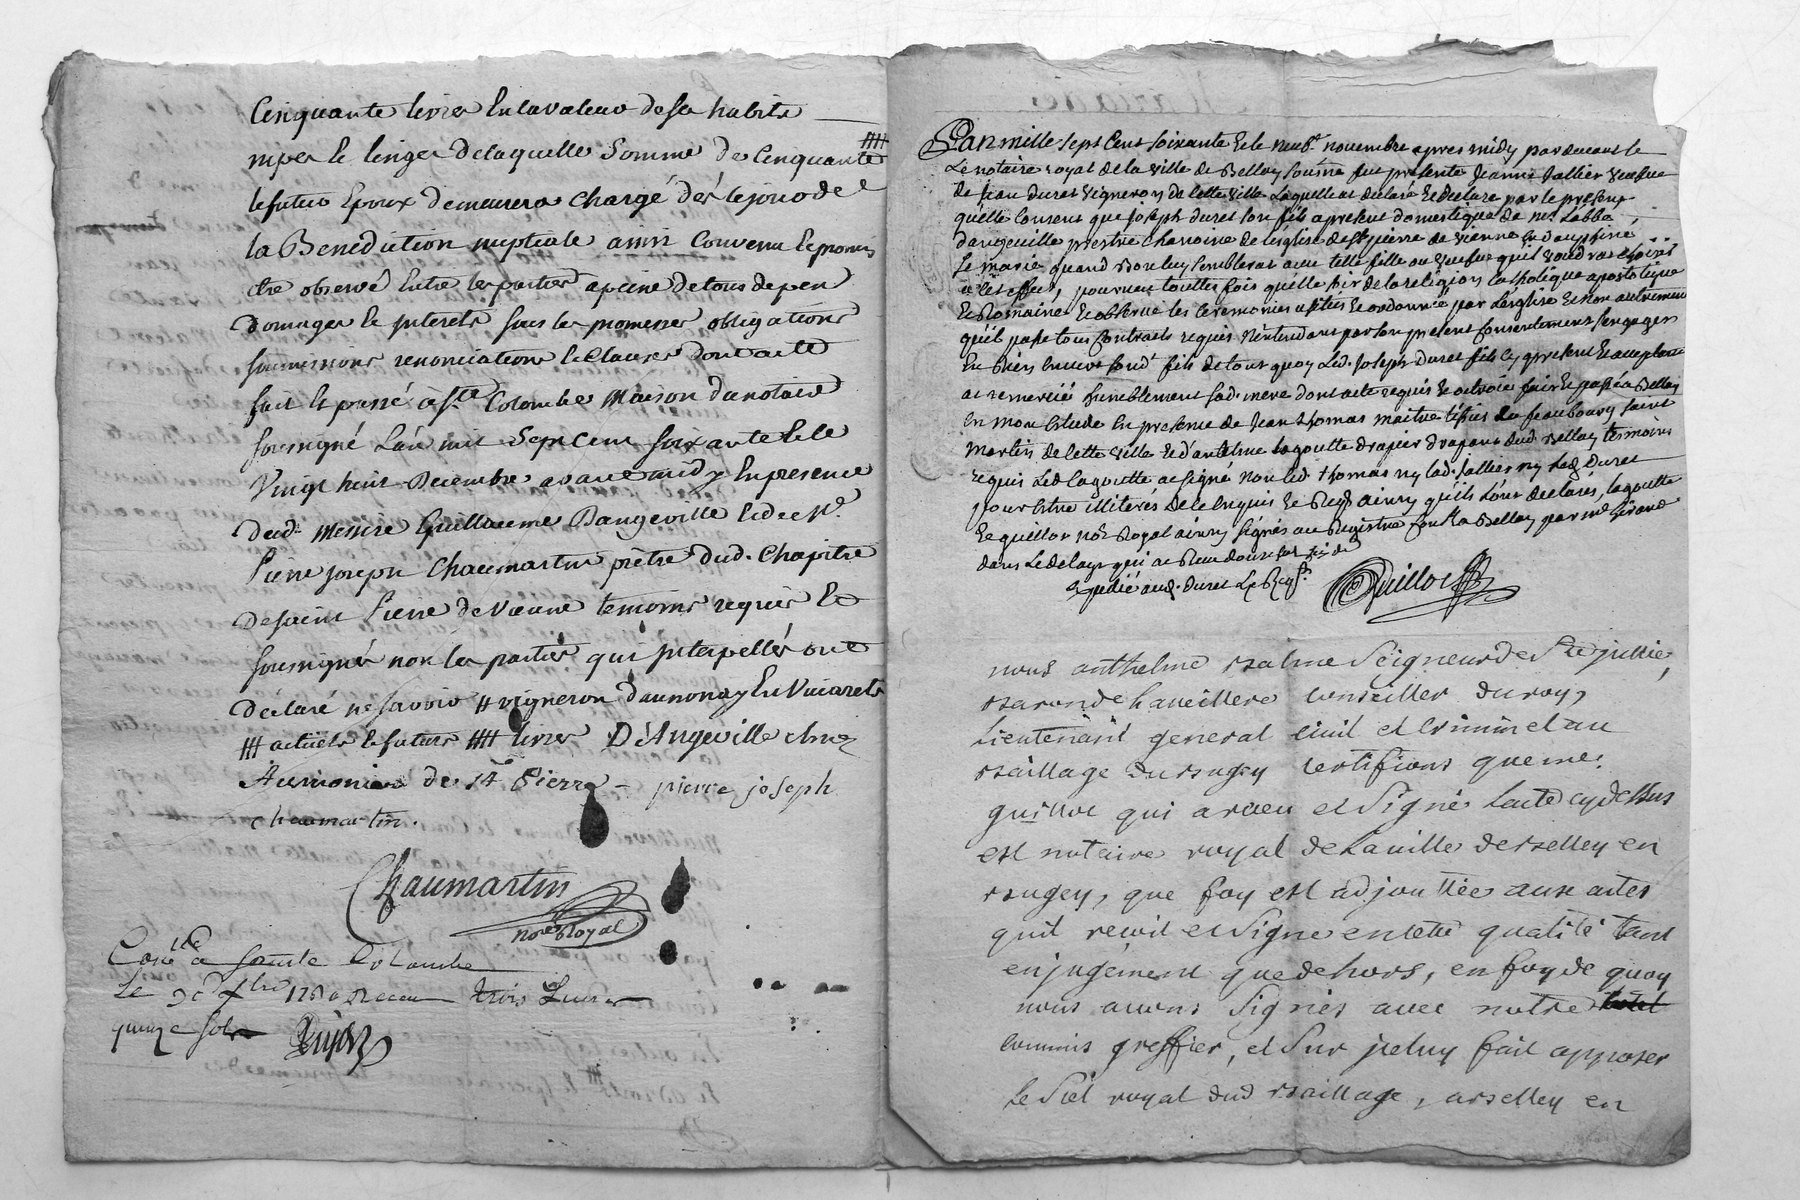 Cinquante livres En la valeur de ses habits
nipes et linges de laquelle Somme de Cinquante ####
le futur Epoux demeurera Chargé dés le jour de
la Benediction nuptiale ainsi Convenu et promis
etre observé Entre les parties a peine de tous depens
domages et Interets sous les promesses obligations
soumissions renonciations et Clauses dont acte
fait et passé à Ste Colombe Maison du notaire
soussigné L'an mil Sept cent soixante et le
Vingt huit Decembre avant midy En presence
dud. Messire Guillaume Dangeville et de Mre
Pierre joseph Chaumartin prêtre dud. Chapitre
de saint Pierre de Vienne temoins requis et
soussignés non les parties qui Interpellés ont
déclaré ne savoir # vigneron d'annonay En Vivarets
### actuels le futur #### livres D'Angeville chne
Aumonier de St Pierre - pierre joseph
chaumartin.
Chaumartin
nore Royal
Conllé a sainte Colombe
Le 1760 Recu trois Livres
quinze sols
L'an mille sept Cent soixante et le neufe novembre apres midy pardevant le
notaire royal de la ville de Belley soussigné fut presente Jeanne Jallier veufue
de jean duret vigneron de cette ville Laquelle at declaré et declare par le present
qu'elle Consent que joseph duret son fils a present domestique de mr Labbé
dangeville prestre Chanoine de leglise de st pierre de vienne en dauphiné
se marie quand bon luy semblerat avec telle fille ou veufue qu'il voudrat choisir
a cet effet, pourveu touttes fois qu'elle soit de la religion catholique apostolique
et Romaine et observe les ceremonies usitées et ordonnée par Leglise et non autrement
qu'il passe tous Contrats requis N'entendant par son present Consentement s'engager
En biens envers sond. fils de tout quoy Led. joseph duret fils cy present et acceptant
at remercié humblement sad. mere dont acte requis et octroié fait et passé a Belley
en mon Etude En presence de jean thomas maitre du feaubourg saint
martin de cette ville et d'antelme Lagoutte drapier drapant dud. Belley temoins
requis Led Lagoutte at signé Non led. thomas ny lad. jallier ny led. duret
pour Etre illiterés de ce Enquis et Reqs ainsy qu'ils L'ont declarés, lagoutte
et guillot nore Royal ainsy signés au Registre Conllé a Belley par mr Girard
dans Le delay qui at Receu douze sols six ds
Expedié aud. duret Le Reqt.
Guillot
nous anthelme Balme Seigneur de Ste julie,
Baron de Lavillere Conseiller du roy,
Lieutenant general Civil et Criminel au
Baillage du Bugey Certifions que me.
guillot qui a receu et Signé Lacte cy dessus
est notaire royal de La ville de Belley en
Bugey, que foy est adjouttée aux actes
quil reçoit et Signe en cette qualité tant
en jugement que dehors, en foy de quoy
nous avons Signés avec notre
commis greffier, et Sur jceluy fait apposer
Le Séel royal dud Baillage, a Belley en